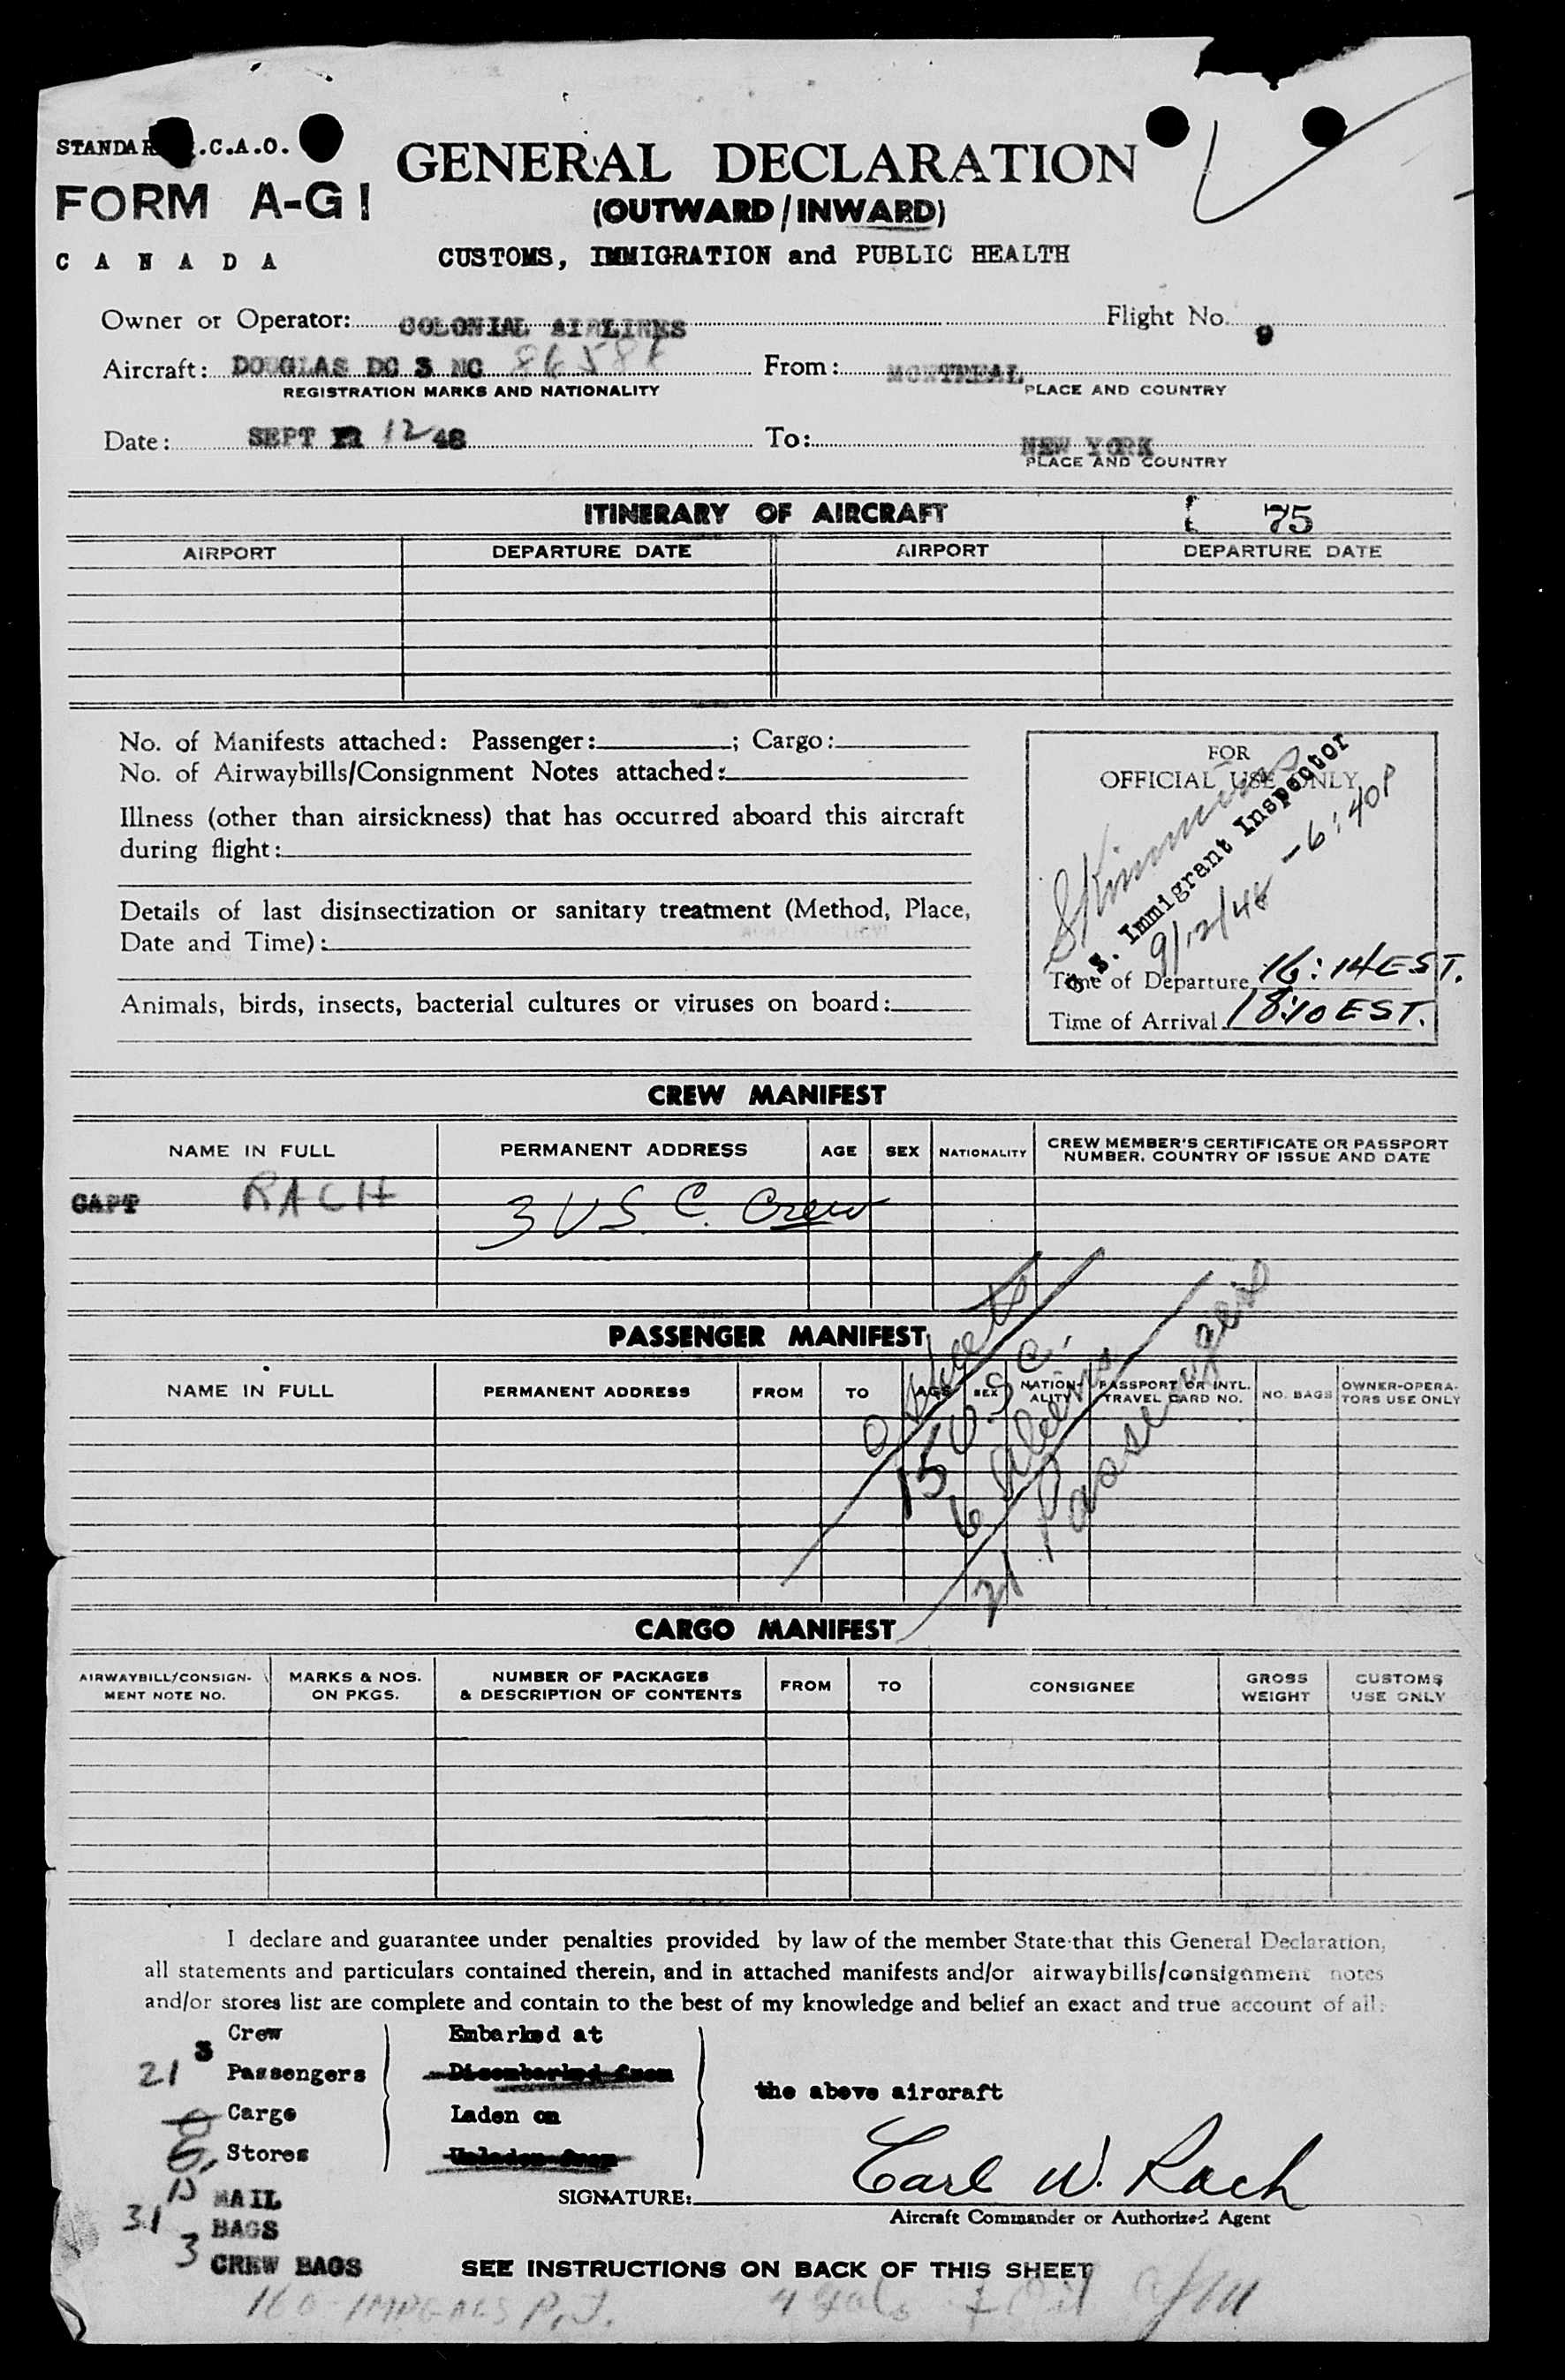 STANDAR .C.A.O.
FORM A-G1
CANADA
GENERAL DECLARATION
(OUTWARD/INWARD)
CUSTOMS, IMMIGRATION and PUBLIC HEALTH
Owner or Operator: COLONIAL AIRLINES Flight No. 9
Aircraft: DOUGLAS DC 3 NC From: MONTREAL
REGISTRATION MARKS AND NATIONALITY PLACE AND COUNTRY
Date: SEPT 12 48 To: NEW YORK
PLACE AND COUNTRY
ITINERARY OF AIRCRAFT 75
AIRPORT DEPARTURE DATE AIRPORT DEPARTURE DATE
No. of Manifests attached: Passenger: ; Cargo:
No. of Airwaybills/Consignment Notes attached:
Illness (other than airsickness) that has occurred aboard this aircraft
during flight:
Details of last disinsectization or sanitary treatment (Method, Place,
Date and Time):
Animals, birds, insects, bacterial cultures or viruses on board:
FOR
OFFICIAL USE ONLY
U.S. Immigrant Inspector
9/12/48 - 6:40P
Time of Departure 16:14 EST.
Time of Arrival 18:10 EST.
CREW MANIFEST
NAME IN FULL PERMANENT ADDRESS AGE SEX NATIONALITY CREW MEMBER'S CERTIFICATE OR PASSPORT
NUMBER, COUNTRY OF ISSUE AND DATE
CAPT RACH 3 U.S.C. Crew
PASSENGER MANIFEST
NAME IN FULL PERMANENT ADDRESS FROM TO AGE SEX NATION-
ALITY PASSPORT OR INTL.
TRAVEL CARD NO. NO. BAGS OWNER-OPERA-
TORS USE ONLY
0 sheets
15 U.S.C.
6 Aliens
21 Passengers
CARGO MANIFEST
AIRWAYBILL/CONSIGN-
MENT NOTE NO. MARKS & NOS.
ON PKGS. NUMBER OF PACKAGES
& DESCRIPTION OF CONTENTS FROM TO CONSIGNEE GROSS
WEIGHT CUSTOMS
USE ONLY
I declare and guarantee under penalties provided by law of the member State that this General Declaration,
all statements and particulars contained therein, and in attached manifests and/or airwaybills/consignment notes
and/or stores list are complete and contain to the best of my knowledge and belief an exact and true account of all:
3 Crew Embarked at
21 Passengers Disembarked from
the above aircraft
Cargo Laden on
Stores Unladen from
MAIL
31 BAGS
3 CREW BAGS
SIGNATURE: Carl W. Rach
Aircraft Commander or Authorized Agent
SEE INSTRUCTIONS ON BACK OF THIS SHEET